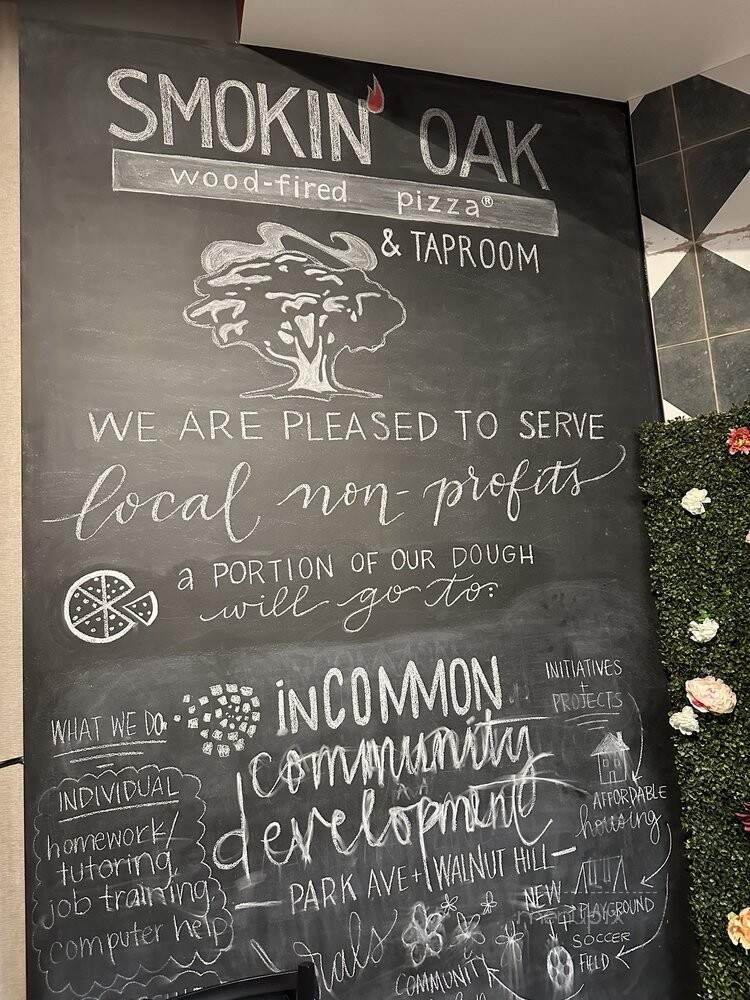 SMOKIN' OAK
wood-fired pizza®
& TAPROOM
WE ARE PLEASED TO SERVE
local non-profits
a PORTION OF OUR DOUGH
will go to:
inCOMMON
community
development
PARK AVE + WALNUT HILL
WHAT WE DO
INDIVIDUAL
homework/
tutoring
job training
computer help
INITIATIVES
+
PROJECTS
AFFORDABLE
housing
NEW
PLAYGROUND
SOCCER
FIELD
COMMUNITY